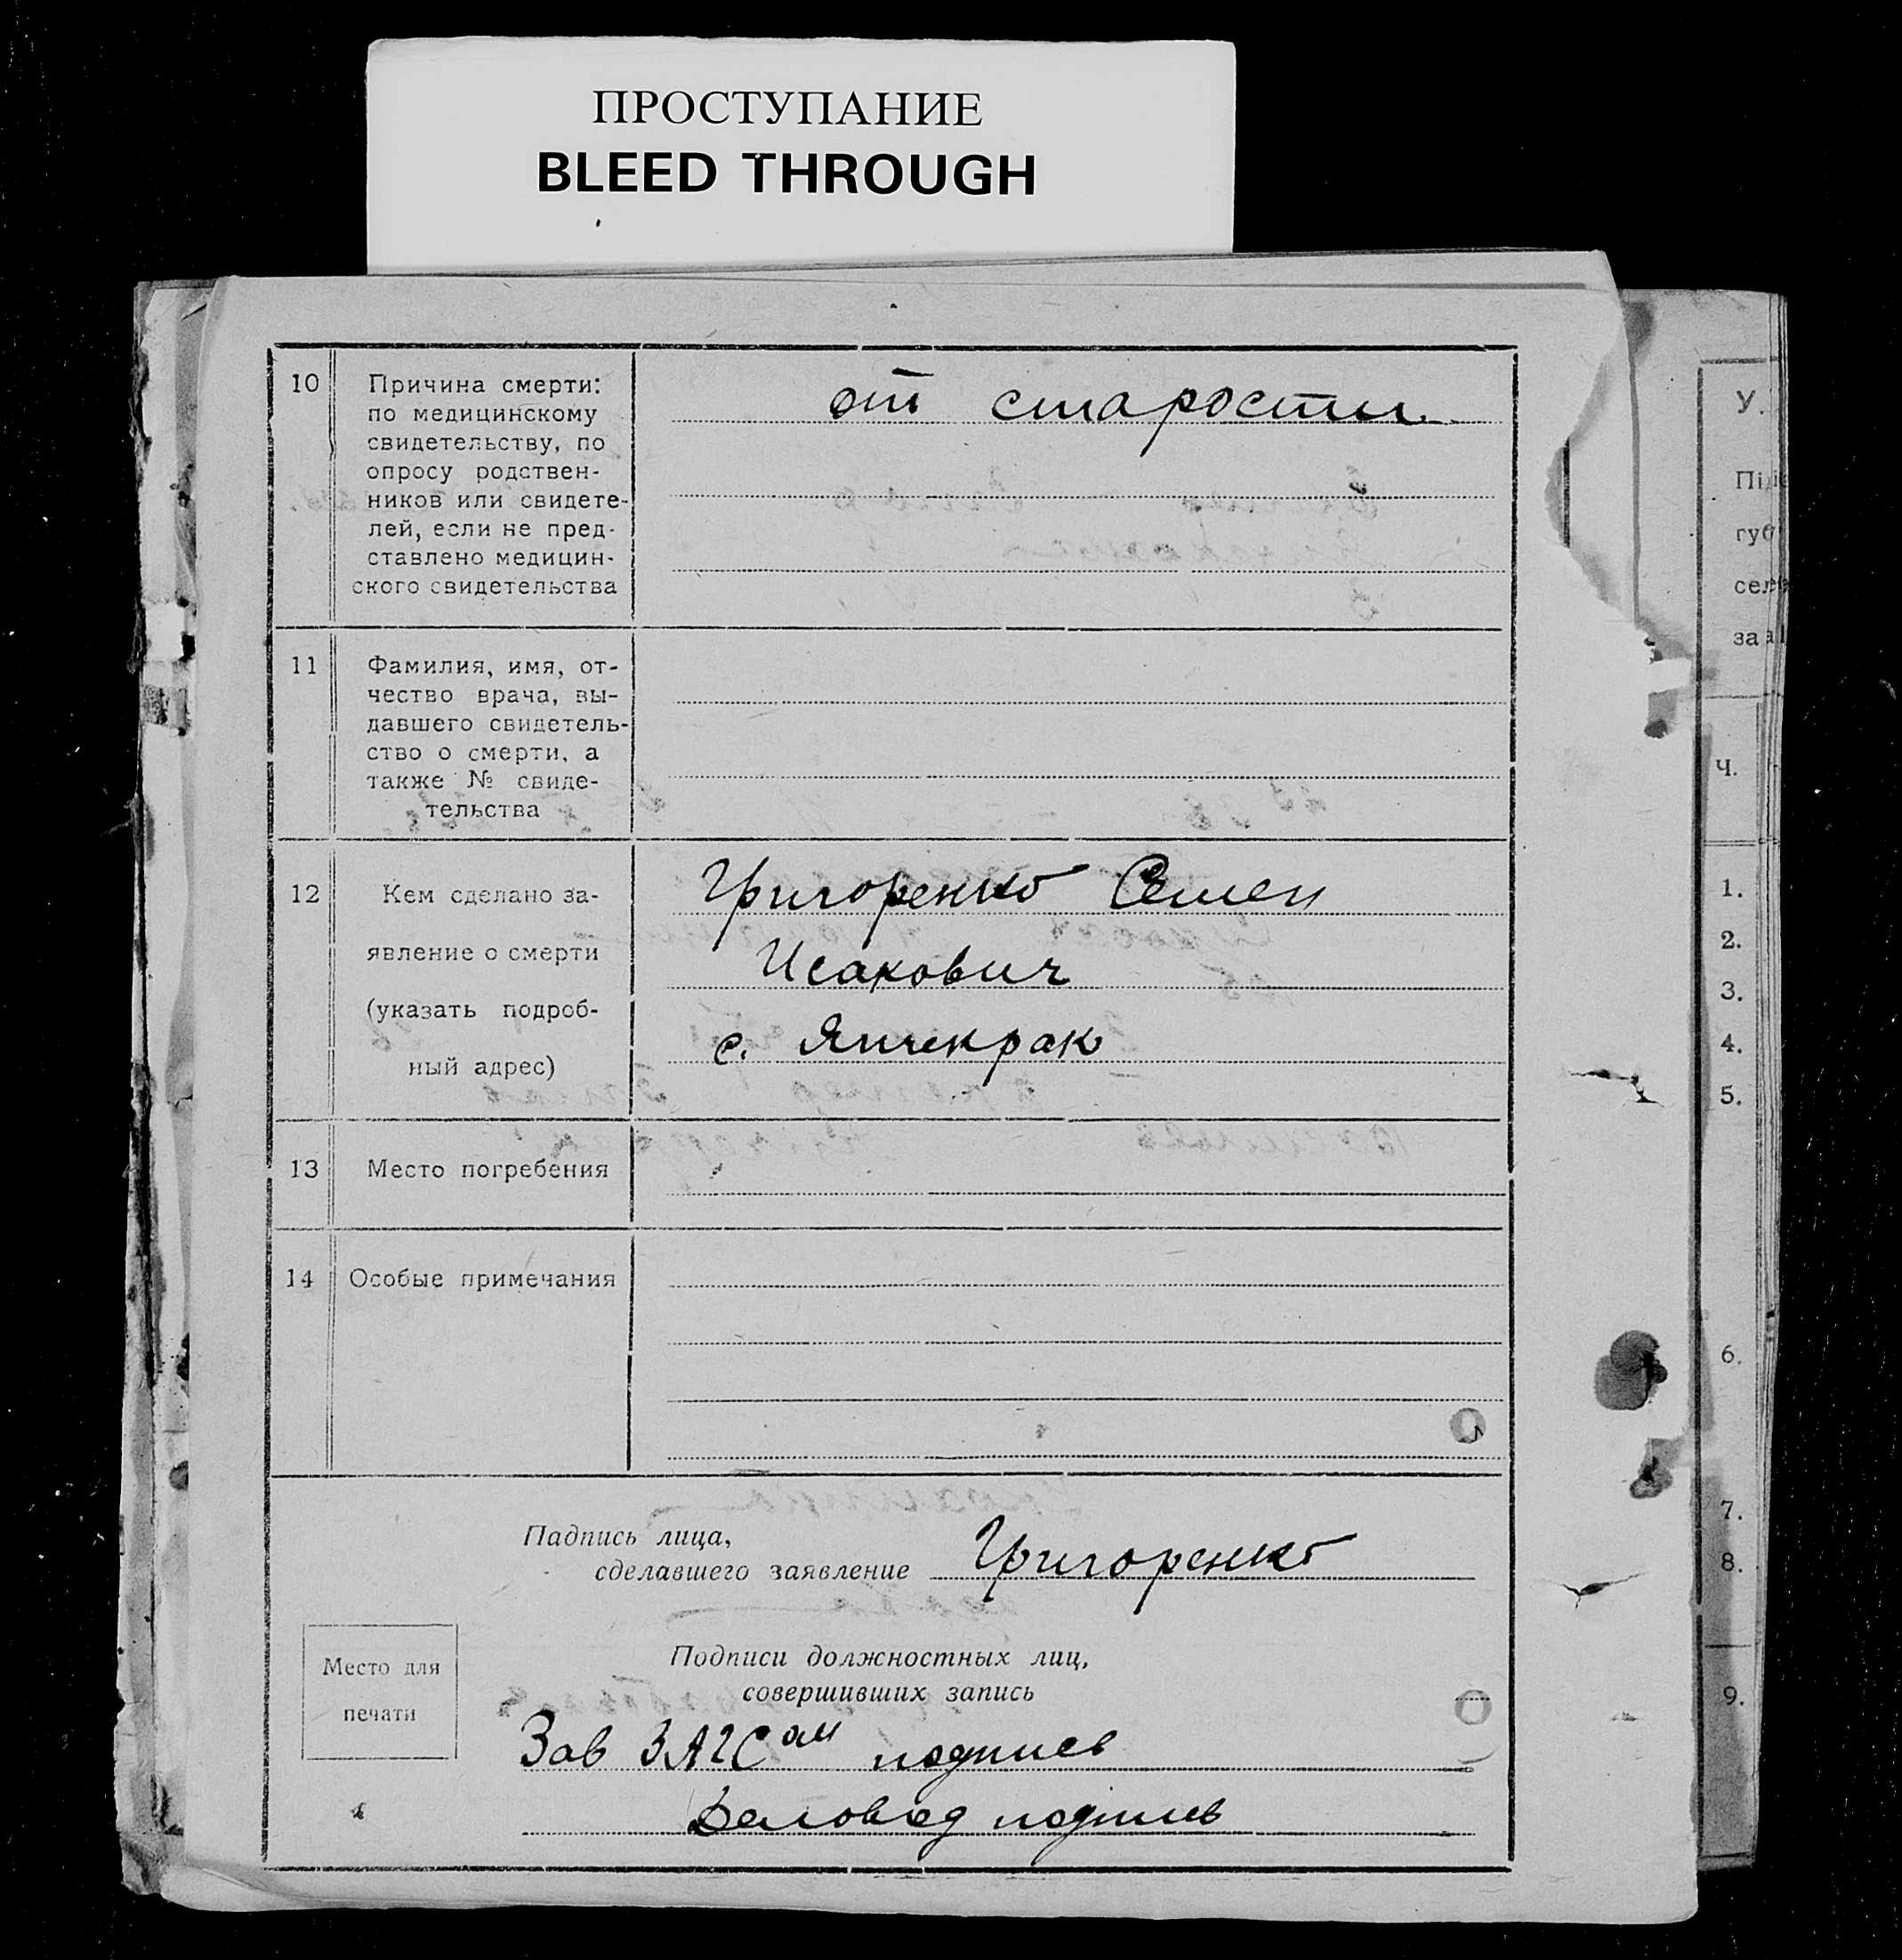 ПРОСТУПАНИЕ
BLEED THROUGH
10
Причина смерти:
по медицинскому
свидетельству, по
опросу родствен-
ников или свидете-
лей, если не пред-
ставлено медицин-
ского свидетельства
от старости
11
Фамилия, имя, от-
чество врача, вы-
давшего свидетель-
ство о смерти, а
также № свиде-
тельства
12
Кем сделано за-
явление о смерти
(указать подроб-
ный адрес)
Григоренко Семен
Исакович
с. Янчекрак
13
Место погребения
14
Особые примечания
Падпись лица,
сделавшего заявление Григоренко
Место для
печати
Подписи должностных лиц,
совершивших запись
Зав ЗАГСом подпись
Деловод подпись
У.
Піді
губ
сел
за
Ч.
1.
2.
3.
4.
5.
6.
7.
8.
9.